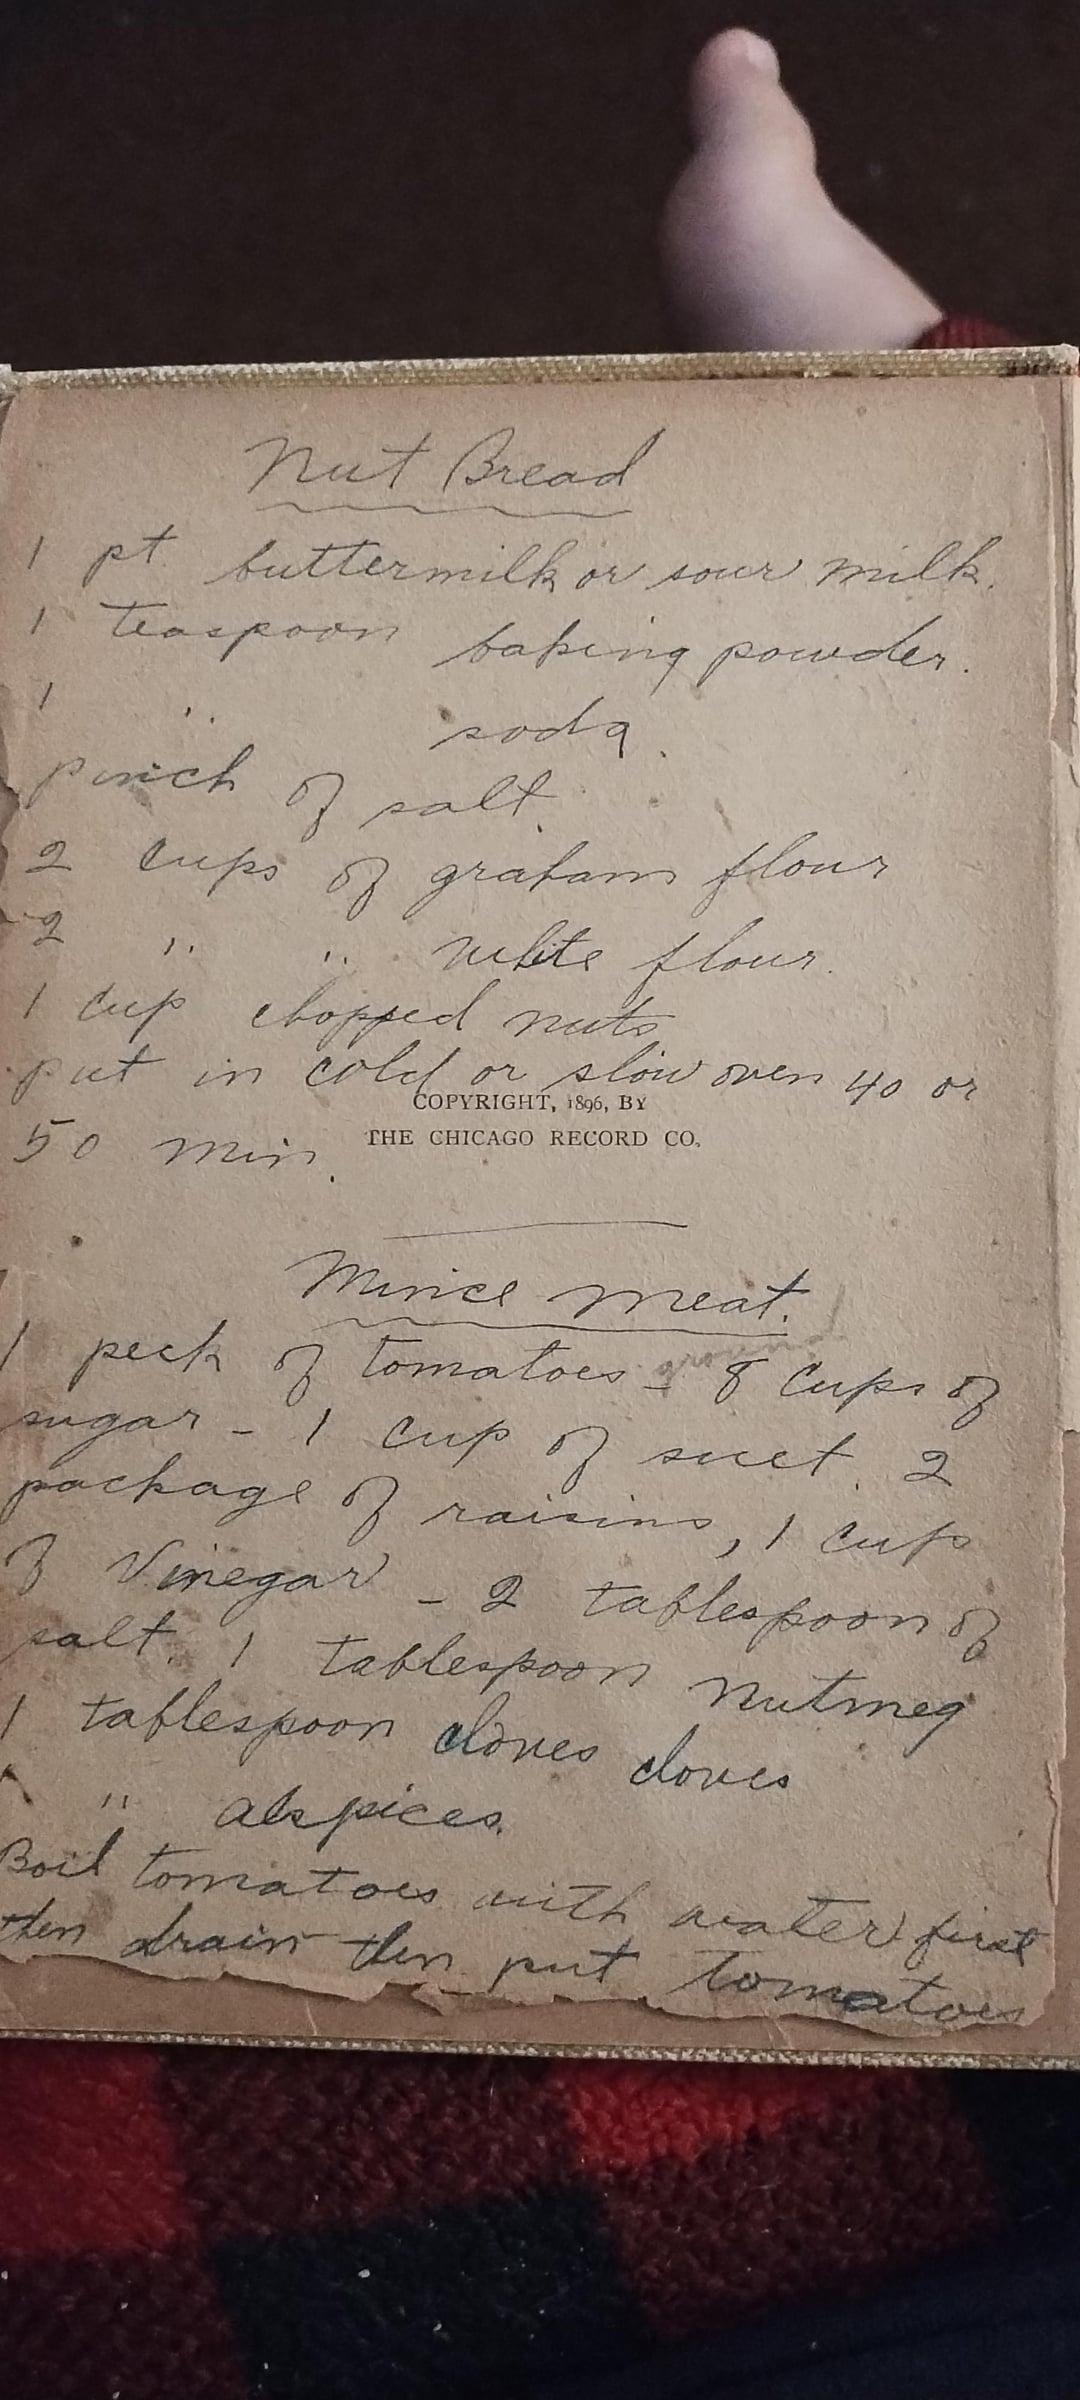 Nut Bread
1 pt. buttermilk or sour milk.
1 teaspoon baking powder.
1 " soda.
pinch of salt.
2 cups of graham flour
2 " " white flour.
1 cup chopped nuts
put in cold or slow oven 40 or
COPYRIGHT, 1896, BY
50 min.
THE CHICAGO RECORD CO.
Mince meat.
ground
1 peck of tomatoes - 8 cups of
sugar - 1 cup of suet. 2
package of raisins, 1 cup
of Vinegar - 2 tablespoon of
salt. 1 tablespoon nutmeg
1 tablespoon cloves cloves
" alspices.
Boil tomatoes with water first
then drain then put tomatoes